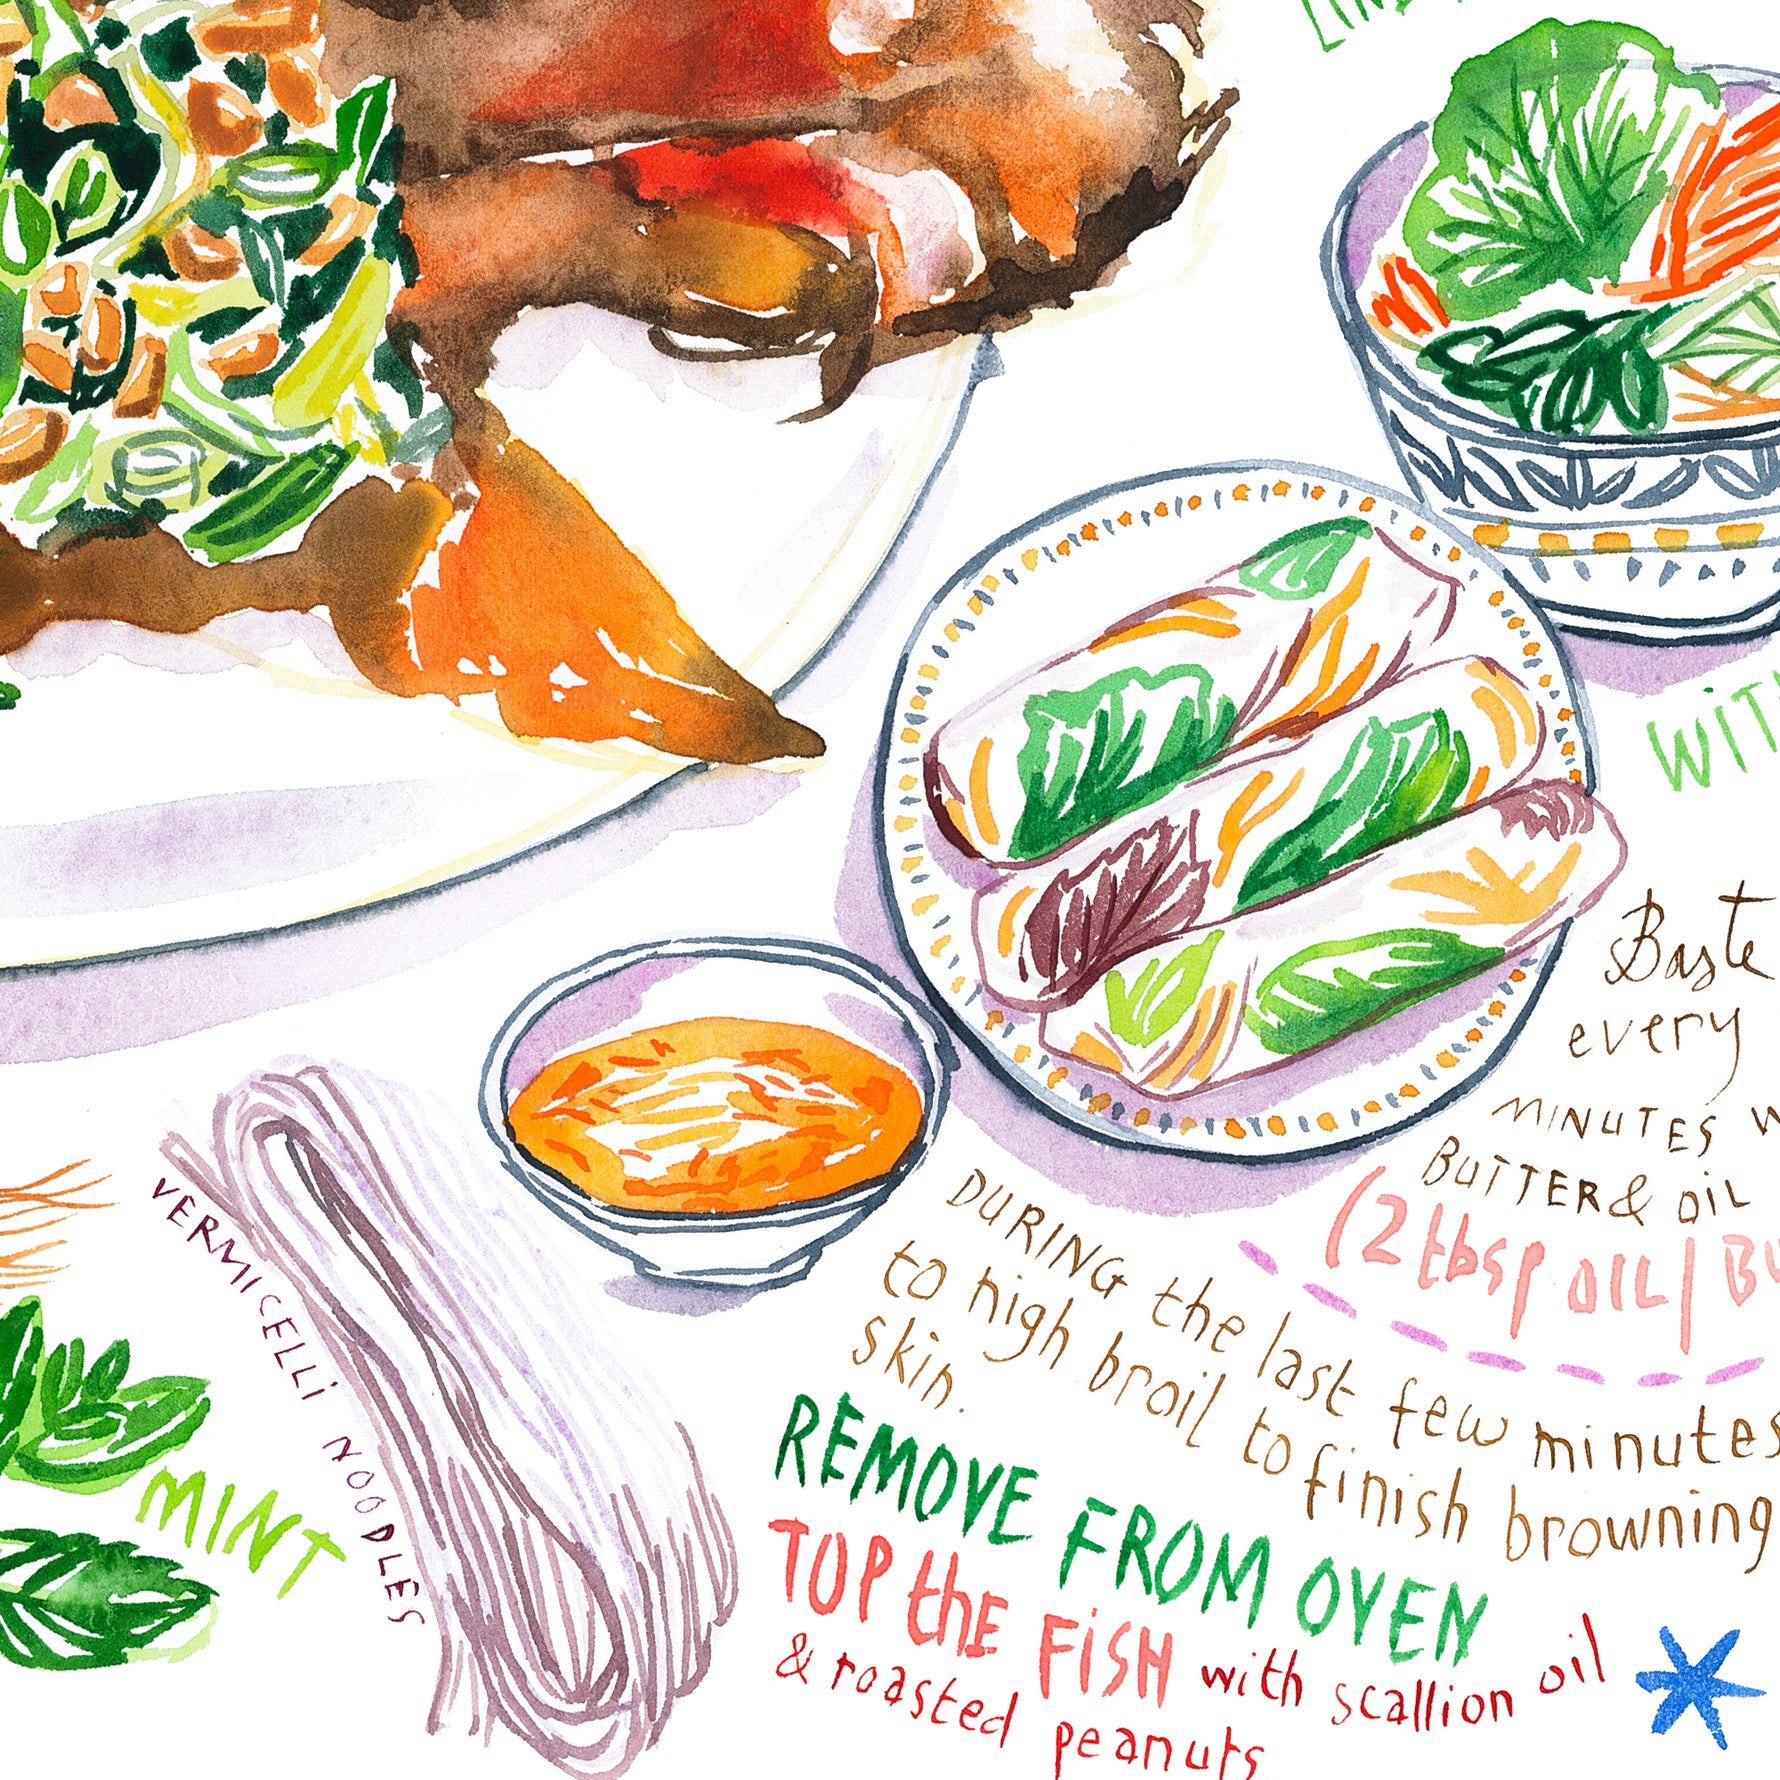 WITH
Baste
every
MINUTES
BUTTER & OIL
(2 tbsp OIL/
DURING the last few minutes
to high broil to finish browning
skin.
REMOVE FROM OVEN
TOP the FISH with scallion oil
& roasted peanuts.
VERMICELLI NOODLES
MINT